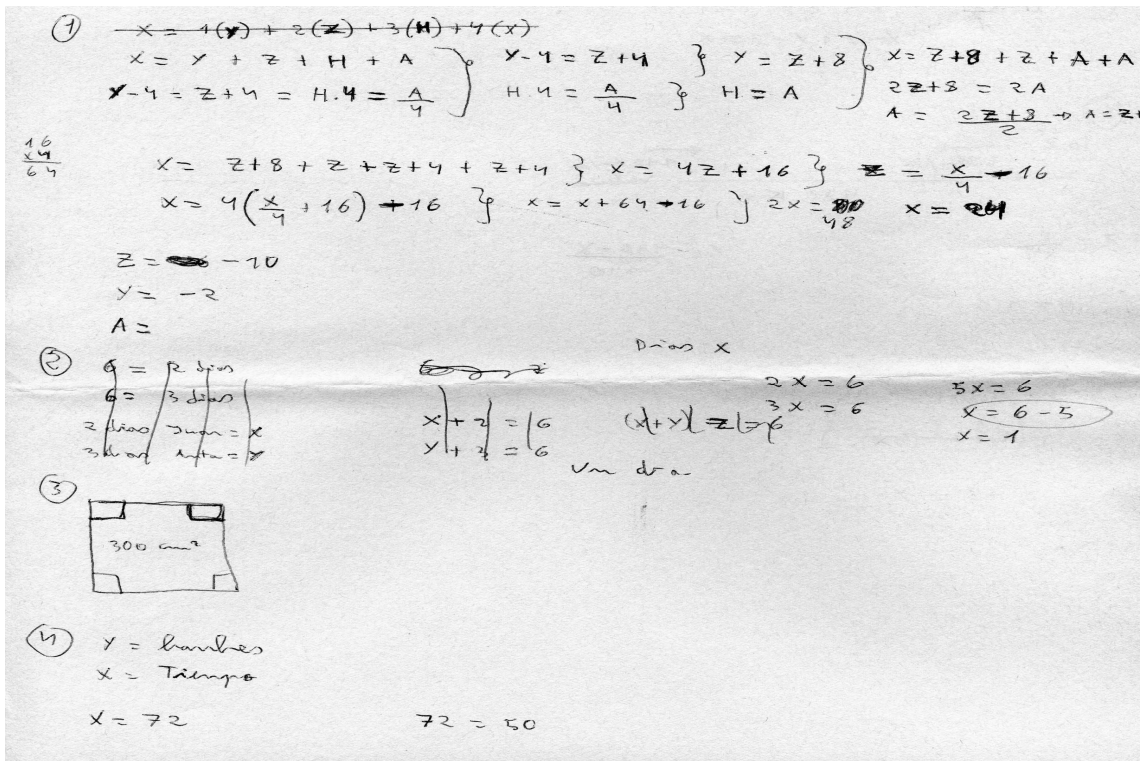 1
X = Y + Z + H + A
Y-4 = Z+4 = H.4 = A/4
Y-4 = Z+4 } Y = Z+8
H.4 = A/4 } H = A
X = Z+8 + Z + A + A
2Z+8 = 2A
A = 2Z+8/2 → A = Z+
16
x4
64
X = Z+8 + Z + Z+4 + Z+4 } X = 4Z+16 } Z = X/4 - 16
X = 4(X/4 + 16) + 16 } X = X+64+16 } 2X = 48 X = 24
Z = -10
Y = -2
A =
2
6 = 2 dias
6 = 3 dias
2 dias Juan = X
3 dias = Y
X + 2 = 6
Y + 3 = 6
Dias X
(X+Y) Z = 6
Un dia
2X = 6
3X = 6
5X = 6
X = 6-5
X = 1
3
300 cm²
4
Y = hombres
X = Tiempo
X = 72
72 = 50